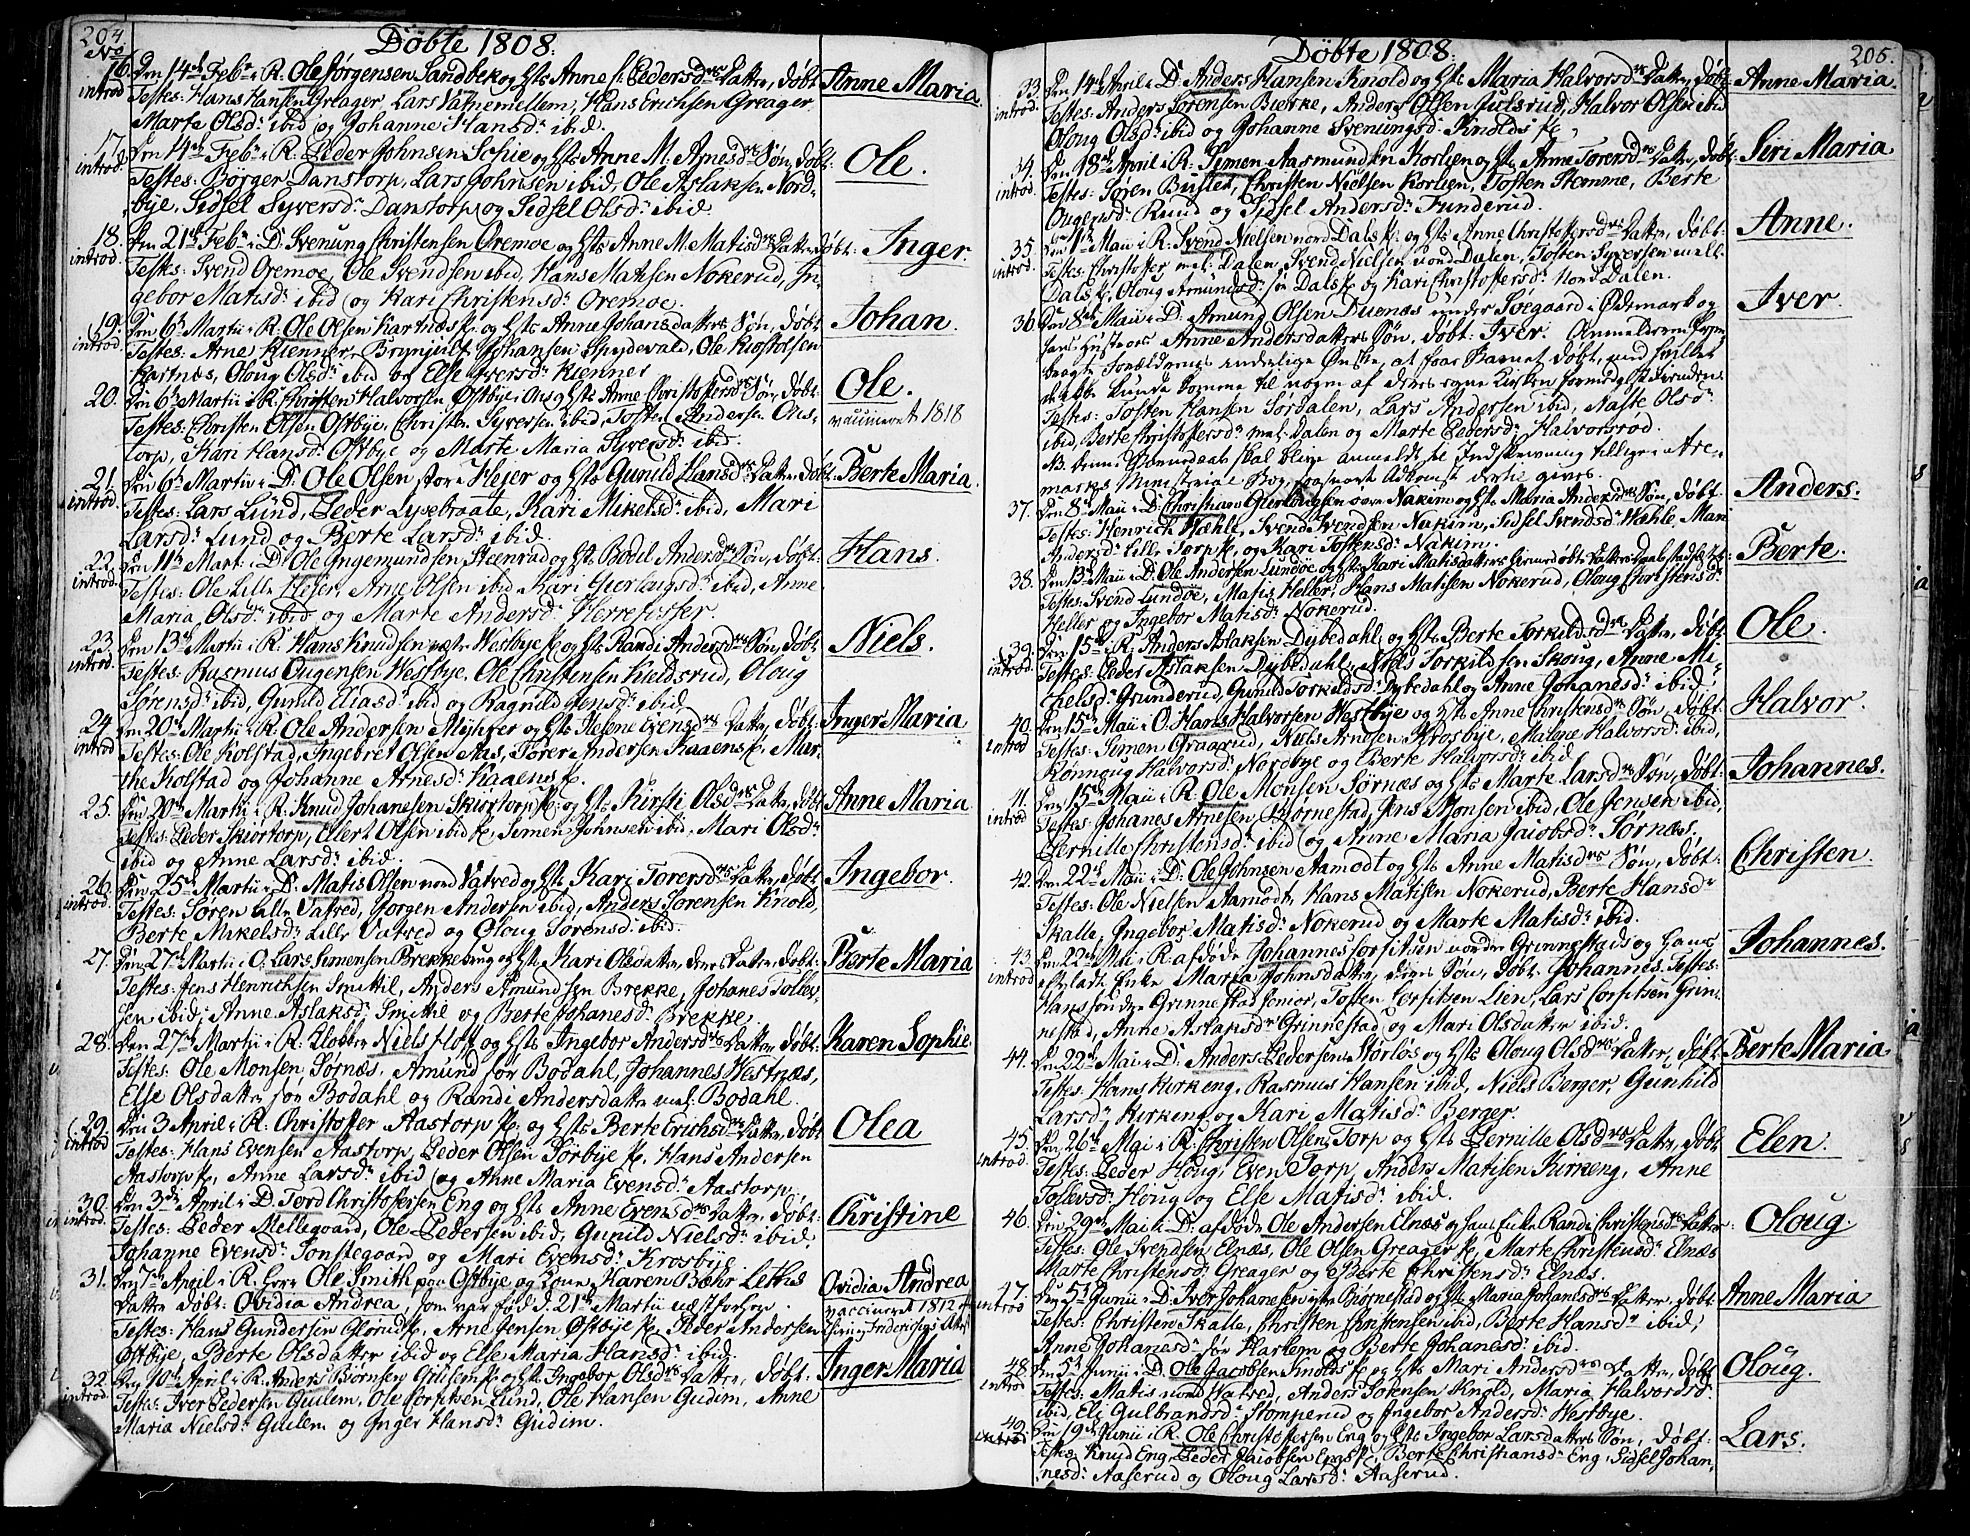 204.
Døbte 1808.
No
16. Den 14de Febr i R. Ole Jørgensen Sandbek og Hst. Anne P. Pedersdrs Datter, døbt: Anne Maria.
introd. Testes: Hans Hansen Greager, Lars Vatnemellem, Hans Erichsen Greager
Marte Olsdr ibid og Johanne Hansdr ibid.
17. Den 14de Febr i R. Peder Johnsen Schie og Hst. Anne M. Arnesdrs Søn, døbt: Ole.
introd. Testes: Børger Danstorp, Lars Johnsen ibid, Ole Aslaksen Nord-
bye, Sidsel Syversdr Danstorp og Sidsel Olsdr ibid.
18. Den 21de Febr i D. Svenung Christensen Oremoe og Hst. Anne M. Matisdrs Datter, døbt: Inger.
introd. Testes: Svend Oremoe, Ole Svendsen ibid, Hans Matisen Nokerud, In-
gebor Matisdr ibid og Kari Christensdr Oremoe.
19. Den 6te Martii i R. Ole Olsen Kartnæs og Hst. Anne Johansdatters Søn, døbt Johan.
introd. Testes: Arne Kienner, Brynjulf Johansen Spydevald, Ole
Kartnæs, Oloug Olsdr ibid og Else Iversdr Kienner
20. Den 6te Martii i R. Christen Halvorsen Østbye og Hst. Anne Christophersdrs Søn, døbt: Ole.
vaccineret 1818
Testes: Christen Olsen Østbye, Christen Syversen ibid, Tosten Andersen Ons-
torp, Kari Hansdr Østbye og Marte Maria Syversdr ibid.
21. Den 6te Martii i D. Ole Olsen store Hejer og Hst. Gunild Hansdrs Datter, døbt. Berte Maria.
introd. Testes: Lars Lund, Peder Lysebraate, Kari Mikelsdr ibid, Mari
Larsdr Lund og Berte Larsdr ibid.
22. Den 11te Mart: i D. Ole Yngemundsen Steenrad og Hst. Bodil Andersdrs Søn, døbt: Hans.
introd. Testes: Ole Lille Hejer, Arne Olsen ibid, Kari Gierlaugsdr ibid, Anne
Maria Olsdr ibid og Marte Andersdr Herrefosser
23. Den 13de Martii i R. Hans Knudsen Westbye og Hst. Randi Andersdrs Søn, døbt Niels.
introd. Testes: Rasmus Eugensen Westbye, Ole Christensen Kieldsrud, Oloug
Sørensdr ibid, Gunild Eliasdr ibid og Ragnild Jensdr ibid.
24. Den 20de Martii i R. Ole Andersen Myhrer og Hst. Helene Evensdrs Datter, døbt: Inger Maria
introd Testes: Ole Kolstad, Ingebret Olsen Aas, Tører Andersen Kaaens, Mar-
the Kolstad og Johanne Arnesdr Kaaens.
25. Den 20de Martii i R. Knud Johanesen Skiørtorp og Hst. Kirsti Olsdrs Datter, døbt Anne Maria
Testes: Peder Skiørtorp, Ellert Olsen ibid, Simen Johnsen ibid, Mari Olsdr
ibid og Anne Larsdr ibid.
26. Den 25de Martii i D. Matis Olsen nord Vatred og Hst. Kari Torersdrs Datter, døbt Ingebor.
introd. Testes: Søren Lille Vatred, Jørgen Andersen ibid, Anders Sørensen Knold,
Berte Mikelsdr Lille Vatred og Oloug Sørensdr ibid.
27. Den 27de Martii i O. Lars Simensen Brekkebrug og Hst. Kari Olsdatter, deres Datter, døbt: Berte Maria
Testes: Jens Henrichsen Smittil, Anders Amundsen Brekke, Johanes Tollev-
sen ibid, Anne Aslaksdr Smittil og Berte Johanesdr Brekke.
28. Den 27de Martii i R. Klokker Niels Hoff og Hst. Ingebor Andersdrs Datter døbt: Karen Sophie.
Testes: Ole Monsen Sørnæs, Amund sør Bodahl, Johannes Westnæs,
Else Olsdatter sør Bodahl og Randi Andersdatter mel: Bodahl.
29. Den 3 April i R. Christoffer Aastorp og Hst. Berte Erichsdrs Datter, døbt Olea
introd Testes: Hans Evensen Aastorp, Peder Olsen Sørbye, Hans Andersen
Aastorp, Anne Larsdr ibid og Anne Maria Evensdr Aastorp.
30. Den 3die April i D. Tord Christophersen Eng og Hst. Anne Evensdrs Datter, døbt: Christine
introd. Testes: Peder Mellegaard, Ole Pedersen ibid, Gunild Nielsdr ibid,
Johanne Evensdr Tonstegaard og Mari Evensdr Krosbye.
31. Den 7de April i R. Herr Ole Smith paa Østbye og Kone Karen Bøhr Leths Ovidia Andrea
Datter døbt: Ovidia Andrea, som var fød d. 21de Martii næstforhen. vaccineret 1812
Testes: Hans Gundersen Glørud, Arne Jensen Østbye, Peder Andersen
Østbye, Berte Olsdatter ibid og Else Maria Hansdr ibid.
32. Den 10de April i R. Anders Børnsen og Hst. Ingebor Olsdrs Datter, døbt: Inger Maria
introd. Testes: Iver Pedersen Gulem, Ole Corfitsen Lund, Ole Hansen Gudim, Anne
Maria Nielsdr Gulem og Inger Hansdr Gudim.
205.
Døbte 1808.
33. Den 14de April i D. Anders Hansen Knold og Hst. Maria Halvorsdrs Datter, døbt Anne Maria.
introd. Testes: Anders Sørensen Bierke, Anders Olsen Julsrud, Halvor Olsen ibid
Oloug Olsdr ibid og Johanne Svenungsdr Knolds.
34. Den 18de April i R. Simen Aasmundsen Korlien og Hst. Anne Torersdrs Datter, døbt: Siri Maria
introd. Testes: Søren Buster, Christen Nielsen Korlien, Tosten Stemme, Berte
Ougensdr Ruud og Sidsel Andersdr Funderud.
35. Den 1te Maii i R. Svend Nielsen nord Dals og Hst. Anne Christophersdrs Datter, døbt: Anne.
introd. Testes: Christopher mel: Dalen, Svend Nielsen nord Dalen, Tosten Syversen mell:
Dals, Oloug Amundsdr sør Dals og Kari Christophersdr Nord Dalen.
36. Den 8de Maii i D. Amund Olsen Duenæs under Soegaard i Ødemark og Iver
hans Hustroes Anne Andersdatters Søn, døbt Iver. Anmelderen
Forældrenes inderlige Ønske, at faae Barnet døbt, med hvilket
de ikke kunde komme til nogen af deres egne Kirker formedelst Fienden.
Testes: Tosten Hansen Sørdalen, Lars Andersen ibid, Nafte Olsdr
ibid, Berte Christophersdr mel: Dalen og Marte Pedersdr Halvorsrød.
NB. denne Barnedaab skal blive anmeldt til Indskrivning tillige i Are-
marks Ministerial Bog, saasnart Adkomst dertil gives.
37. Den 8de Maii i D. Christian Gierlaugsen Nakim og Hst. Maria Andersdrs Søn, døbt. Anders.
Testes: Henrich Wæhle, Svend Svendsen Nakim, Sidsel Svendsdr Wæhle, Mari
Andersdr Lille Torp, og Kari Tostensdr Nakim.
38. Den 13de Maii i D. Ole Andersen Lundøe og Hst. Kari Matisdatters hiemmedøbte Datters Daab stadfæstet Berte.
Testes: Svend Lundøe, Matis Heller, Hans Matisen Nokerud, Oloug
Heller og Ingebor Matisdr Nokerud.
39. Den 15de i R. Anders Aslaksen Dybedahl og Hst. Berte Torkildsdrs Datter, døbt Ole.
introd. Testes: Peder Aslaksen Dybedahl, Niels Torkildsen Skoug, Anne Mi-
chelsdr Grunderud, Gunild Torkildsdr Dybedahl og Anne Johanesdr ibid.
40. Den 15de Maii i O. Hans Halvorsen Westbye og Hst. Anne Christensdrs Søn, døbt: Halvor.
introd Testes: Simen Graarud, Niels Arnesen Krosbye, Malene Halvorsdr ibid,
Rønnoug Halvorsdr Nordbye og Berte Halvorsdr ibid
41. Den 15de Maii i R. Ole Monsen Sørnæs og Hst. Marte Larsdrs Søn, døbt: Johannes.
introd Testes: Johanes Arnesen Biørnestad, Jens Monsen ibid, Ole Jensen ibid,
Pernille Christensdr ibid og Anne Maria Jacobsdr Sørnæs.
42. Den 22de Maii i D. Ole Johnsen Aamodt og Hst. Anne Matisdrs Søn, døbt: Christen.
Testes: Ole Nielsen Aamodt, Hans Matisen Nokerud, Berte Hansdr
Skalle, Ingebor Matisdr Nokerud og Marte Matisdr ibid.
43. Den 22de Mai i R. afdøde Johannes Corfitsen nordre Grinnestads og hans Johannes.
introd efterladte Enke Maria Johnsdatter, deres Søn, døbt. Johannes. Testes:
Hans søndre Grinnestad, Tosten Corfitsen Lien, Lars Corfitsen Grin-
nestad, Anne Aslaksdr Grinnestad og Mari Olsdatter ibid.
44. Den 22de Mai i D. Anders Pedersen Størløs og Hst. Oloug Olsdrs Datter, døbt Berte Maria
Testes: Hans Kirkeng, Rasmus Hansen ibid, Niels Berger, Gunhild
Larsdr Kirkeng og Kari Matisdr Berger.
45. Den 26de Mai i R. Christen Olsen Torp og Hst. Pernille Olsdrs Datter, døbt Elen.
introd. Testes: Peder Houg, Even Torp, Anders Matisen Kirkeng, Anne
Tollevsdr Houg og Else Matisdr ibid.
46. Den 29de Mai i D. afdøde Ole Andersen Elnæs og hans Enke Randi Christensdrs Datter: Oloug.
Testes: Ole Svendsen Elnæs, Ole Olsen Greager, Marte Christensdr Elnæs
Marte Christensdr Greager og Berte Christensdr Elnæs.
47. Den 5te Junii i D. Iver Johanesen Biørnestad og Hst. Maria Johanesdrs Datter, døbt Anne Maria
introd Testes: Christen Skalle, Christen Christensen ibid, Berte Hansdr ibid,
Anne Johanesdr sør Harlem og Berte Johanesdr ibid.
48. Den 5te Junii i D. Ole Jacobsen Knolds og Hst. Mari Andersdrs Datter, døbt Oloug.
introd Testes: Matis nord Hatred, Anders Sørensen Knold, Maria Halvorsdr
ibid, Eli Gulbrandsdr Stomperud og Ingebor Andersdr Westbye.
49. Den 19de Junii i R. Ole Christophersen Eng og Hst. Ingebor Larsdatters Søn, døbt: Lars.
introd Testes: Knud Eng, Peder Jacobsen Engs, Berte Christiansdr Eng, Sidsel Johan-
nesdr Aaserud og Oloug Larsdr Aaserud.